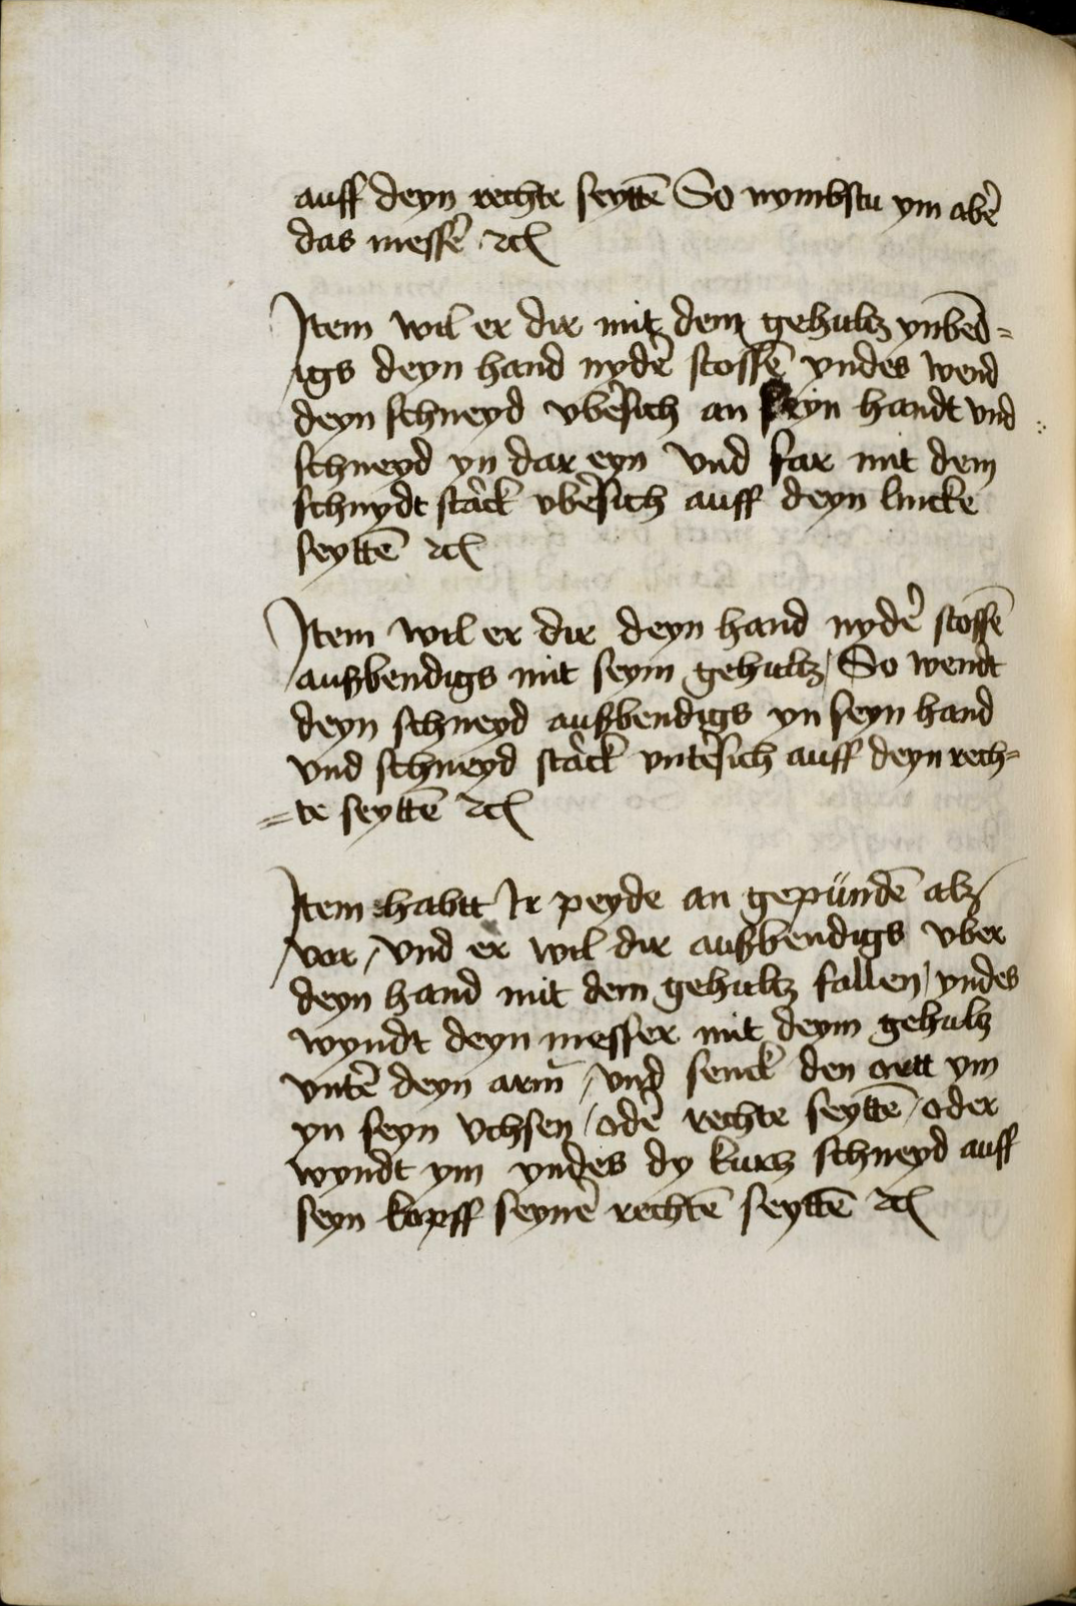 auff deyn rechte seyttē So nymbstu ym abe᷑
das messe᷑ ⁊cꝭ
Jtem wil er dir mit dem gehultz ynbēd=
igs deyn hand nyde᷑ stossē yndes wend
deyn schneyd vbe᷑sich an seyn handt vnd
schneyd yn dar eyn vnd far mit dem
schnydt sta᷑ck vbe᷑sich auff deyn lincke
seyttē ⁊cꝭ
Jtem wil er dir deyn hand nyde᷑ stossē
außbendigs mit seym gehultz / So wendt
deyn schneyd außbendigs yn seyn hand
vnd schneyd sta᷑ck vnte᷑sich auff deyn rech=
=te seyttē ⁊cꝭ
Jtem habtt Jr peyde an gepündē alz
vor / vnd er wil dir außbendigs vber
deyn hand mit dem gehultz fallen / yndes
wyndt deyn messer mit deym gehulz
vnte᷑ deyn arm̄ / vnd senck den ortt ym
yn seyn vchsen / ode᷑ rechte seyttē / oder
wyndt ym yndes dy kurtz schneyd auff
seyn kopff seyne᷑ rechtē seyttē ⁊cꝭ